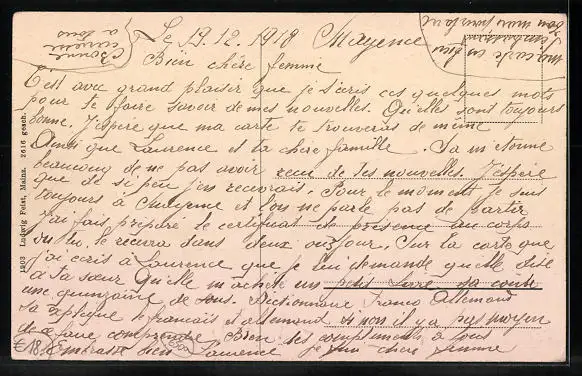 Le 19.12.1918 Mayence
Bien chère femme
C'est avec grand plaisir que je t'écris ces quelques mots
pour te faire savoir de mes nouvelles. Qu'elles sont toujours
bonne. J'espère que ma carte te trouveras de même
Ainsi que Laurence et ta chère famille. Sa m'etonne
beaucoup de ne pas avoir recu de tes nouvelles. J'espère
que de si peu j'en recevrais. Pour le moment je suis
toujours à Mayence et l'on ne parle pas de partir
J'ai fais préparé le certificat de présence au corps
tu le recevra dans deux ou jour. Sur la carte que
j'ai ecris à Laurence que je lui demande qu'elle dise
à ta sœur qu'elle m'achète un petit livre sa coute
une quinzaine de sous. Dictionnaire Franco Allemand
sa explique le francais et allemand si non il y a pas moyen
de se faire comprendre Bien des compliments à tous
Embrasse bien Laurence je suis chère femme
Bonne
à tous
ma carte
1903 Ludwig Feist, Mainz. 2616 gesch.
€18